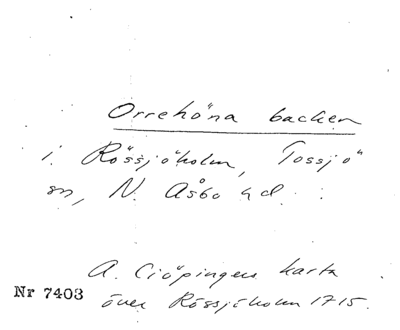 Orrehöna backen
i Rössjöholm, Tossjö
sn, N. Åsbo hd.
A. Ciöpingers karta
Nr 7403 över Rössjöholm 1715.